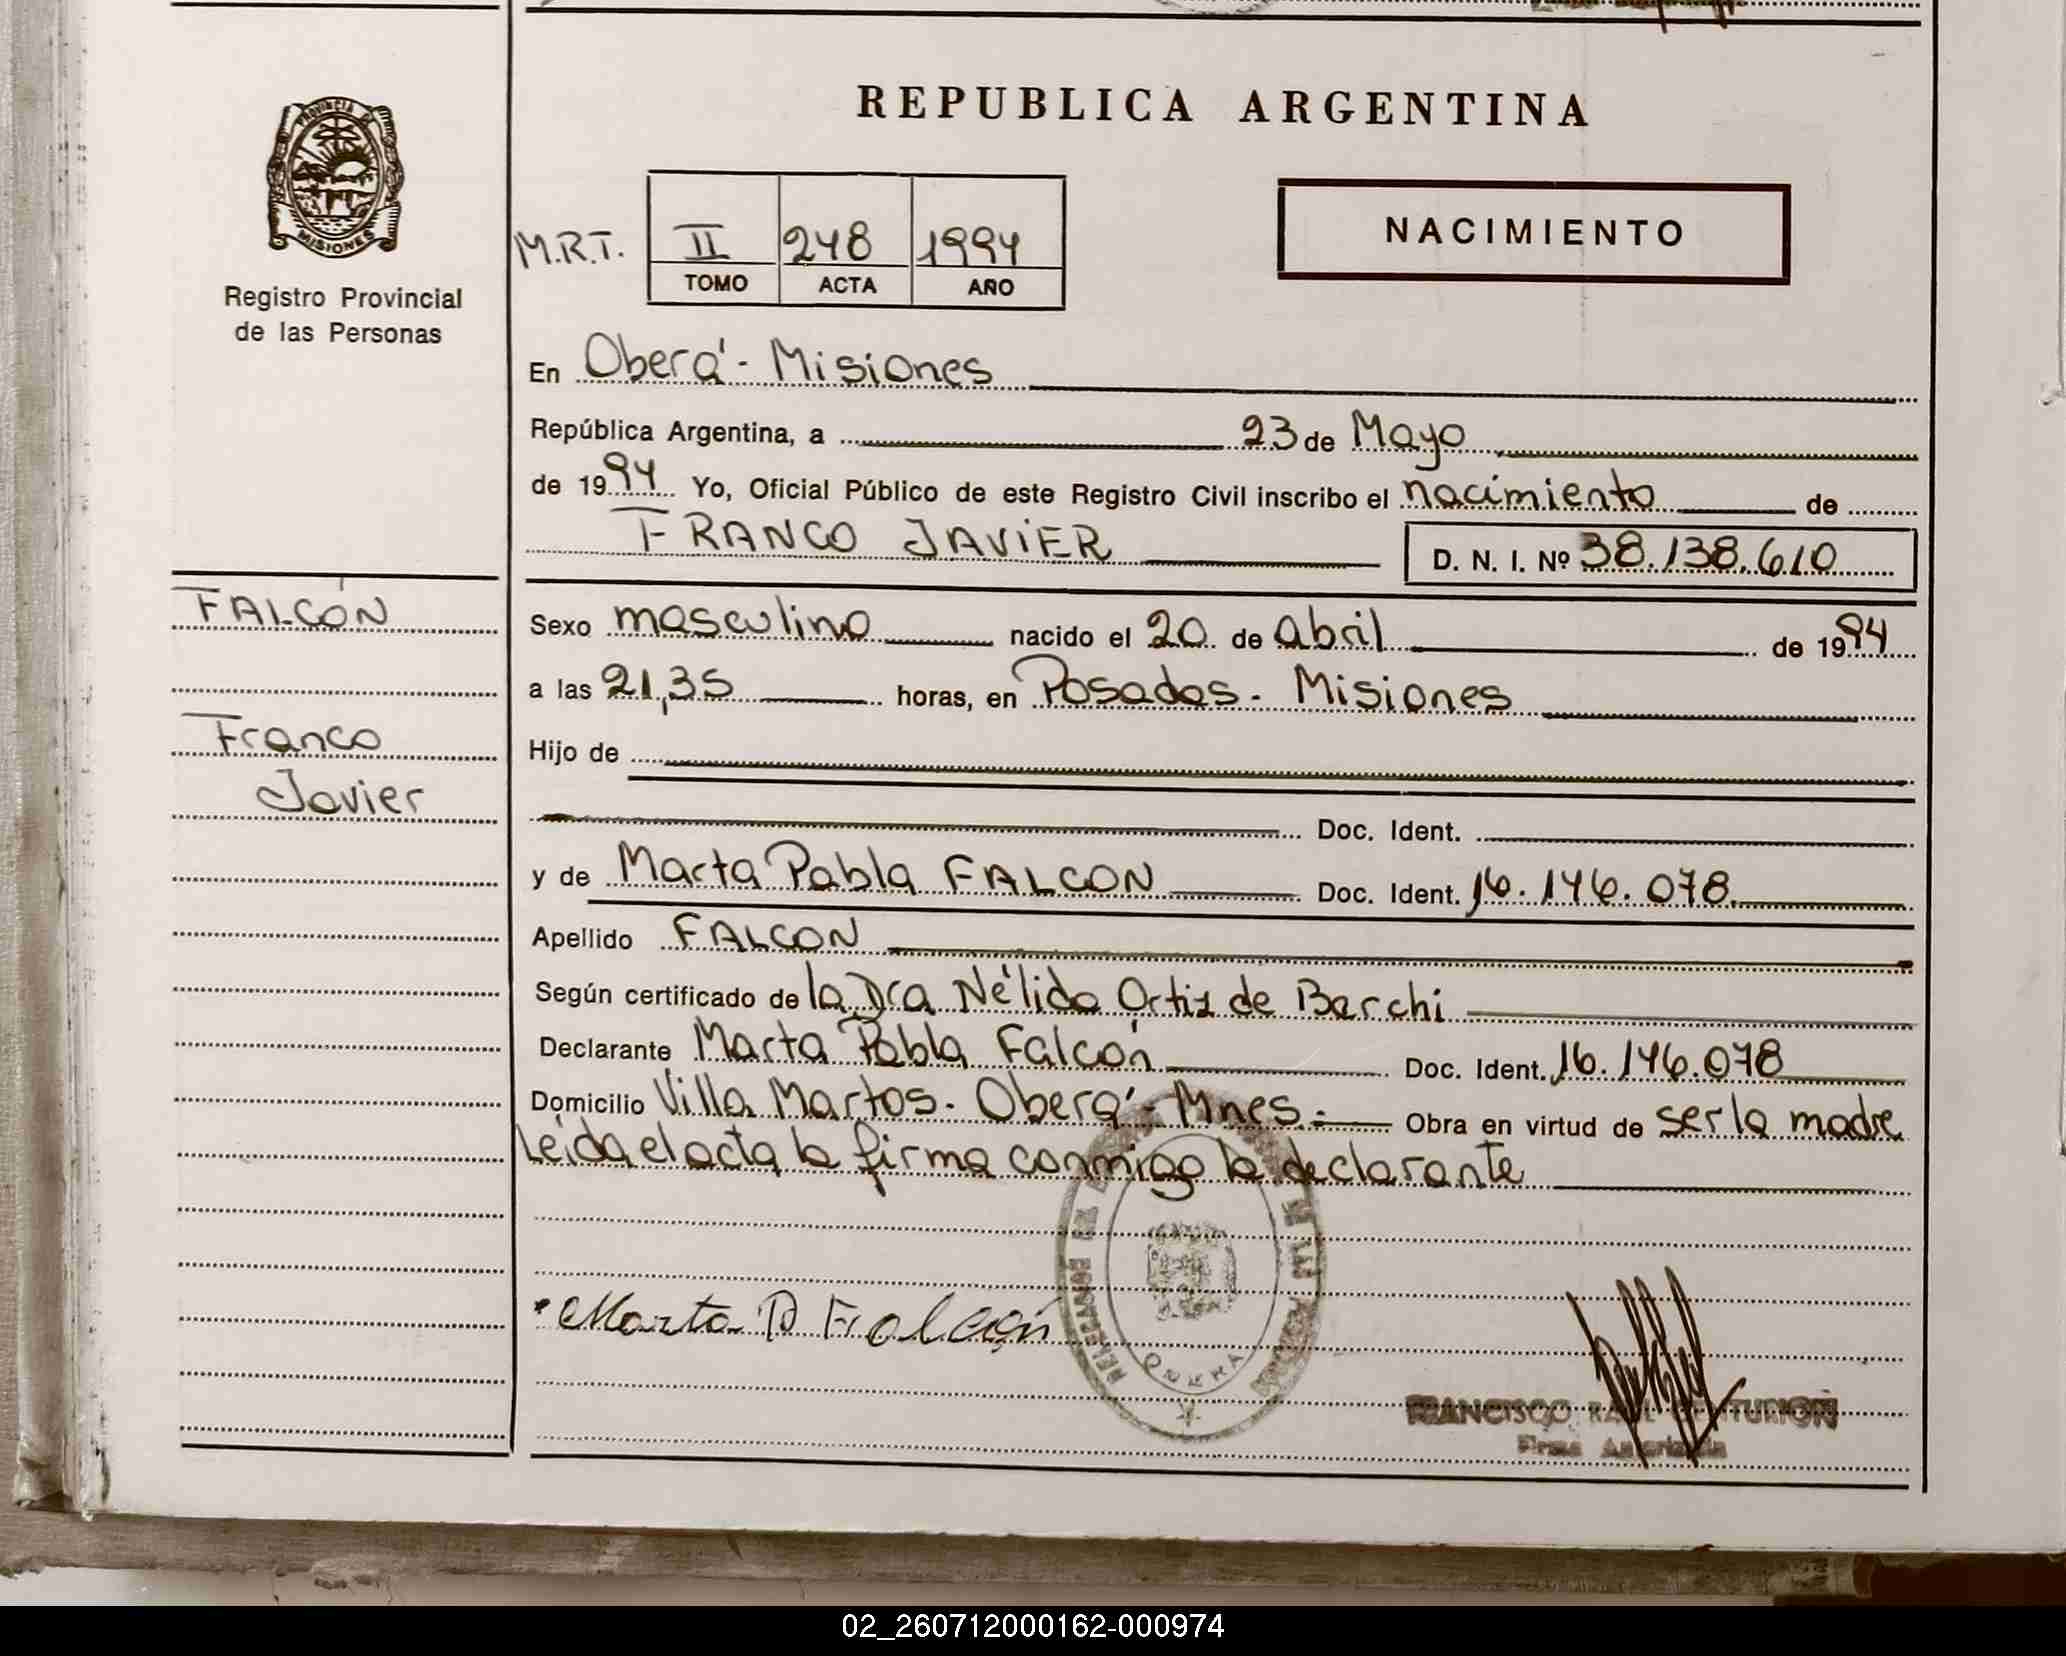 REPUBLICA ARGENTINA
PROVINCIA DE MISIONES
Registro Provincial
de las Personas
M.R.T. II 248 1994
TOMO ACTA AÑO
NACIMIENTO
En Oberá - Misiones
República Argentina, a 23 de Mayo
de 1994 Yo, Oficial Público de este Registro Civil inscribo el nacimiento de
FRANCO JAVIER D. N. I. Nº 38.138.610
FALCÓN
Franco
Javier
Sexo masculino nacido el 20 de abril de 1994
a las 21,35 horas, en Posadas - Misiones
Hijo de
Doc. Ident.
y de Marta Pabla FALCON Doc. Ident. 16.146.078.
Apellido FALCON
Según certificado de la Dra Nélida Ortiz de Berchi
Declarante Marta Pabla Falcón Doc. Ident. 16.146.078
Domicilio Villa Martos - Oberá - Mnes.- Obra en virtud de ser la madre
Leida el acta la firma conmigo la declarante
Marta P Falcón
OBERA
FRANCISCO RAUL CENTURION
Firma Autorizada
02_260712000162-000974